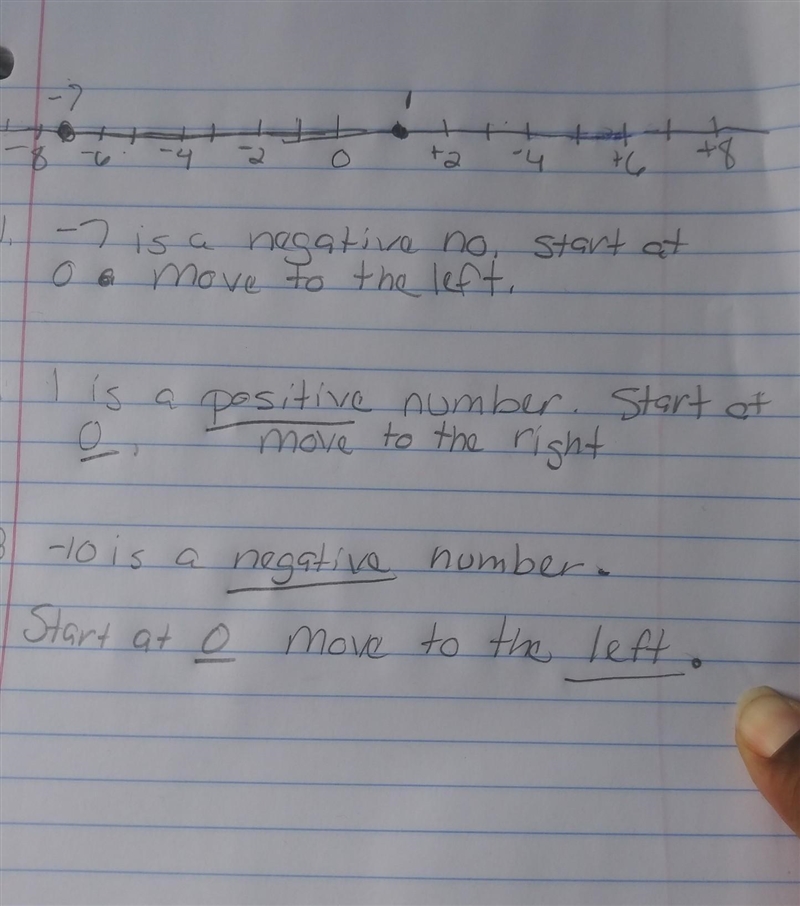 -7 1
-8 -6 -4 -2 0 +2 -4 +6 +8
1. -7 is a negative no, start at
0 move to the left.
1 is a positive number. Start at
0, move to the right
3 -10 is a negative number.
Start at 0 move to the left.